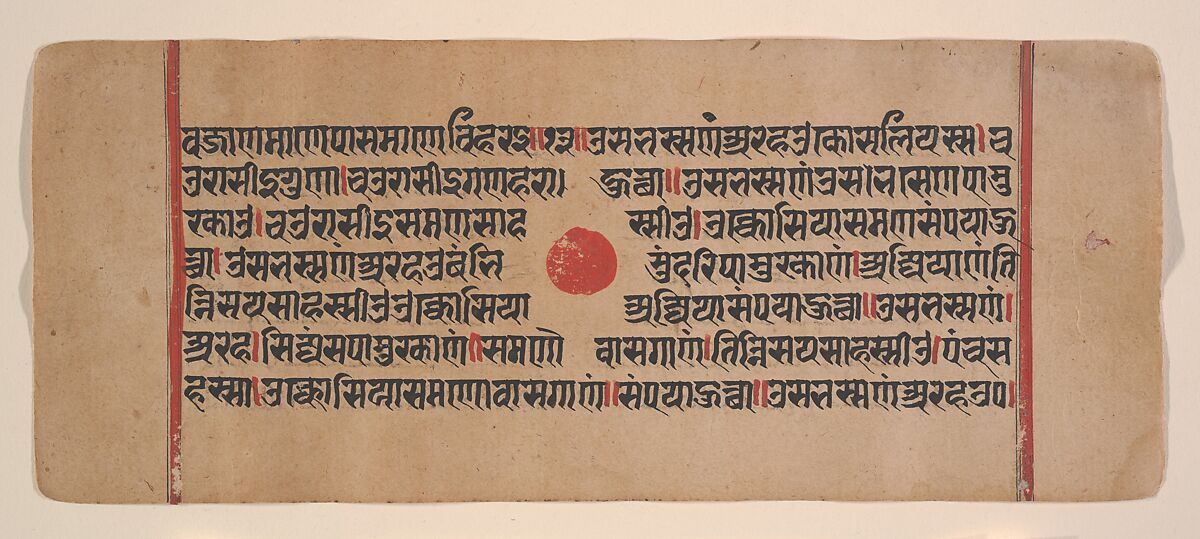 वजाणमाणेपासमाणेविहरइ॥१३॥उसभस्सणंअरहउकोसलियस्स।च
उरासीइगुणा।चउरासीइगणहरा। हुत्था॥उसभस्सणंउसभसेणपामु
क्खाउ।चउरासीइसमणसाह स्सीउ।उक्कोसियासमणसंपयाहु
त्था।उसभस्सणंअरहउबंभि सुंदरिपामुक्खाणं।अज्जियाणंति
न्निसयसाहस्सीउउक्कोसिया अज्जियासंपयाहुत्था॥उसभस्सणं।
अरह।सिज्जंसपामुक्खाणं॥समणो वासगाणं।तिन्निसयसाहस्सीउ।पंचस
हस्सा।उक्कोसियासमणोवासगाणं॥संपयाहुत्था॥उसभस्सणंअरहउप।